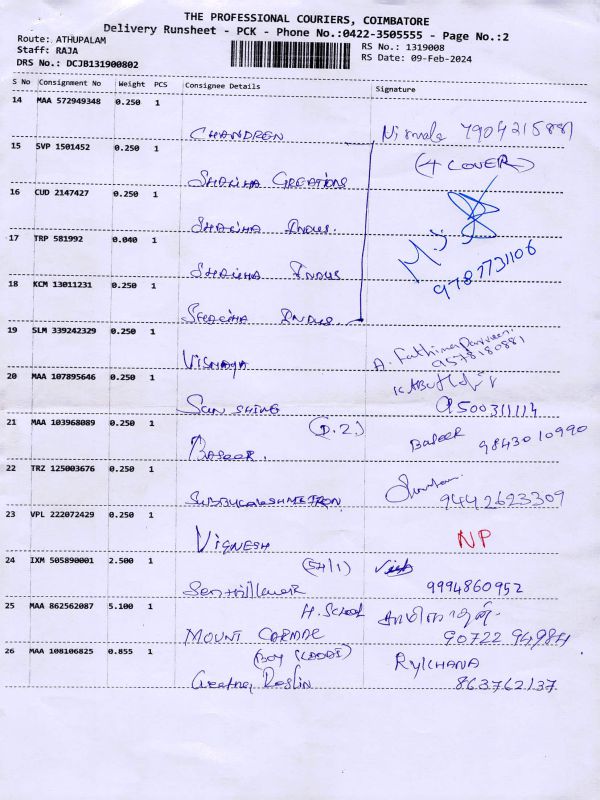 THE PROFESSIONAL COURIERS, COIMBATORE
Delivery Runsheet - PCK - Phone No.:0422-3505555 - Page No.:2
Route: ATHUPALAM
RS No.: 1319008
Staff: RAJA
RS Date: 09-Feb-2024
DRS No.: DCJB131900802
S No Consignment No Weight PCS Consignee Details Signature
14 MAA 572949348 0.250 1
CHANDREN Nirmala 7904215881
15 SVP 1501452 0.250 1
(4 COVER)
SHALIHA CREATIONS
16 CUD 2147427 0.250 1
SHALIHA INDUS.
17 TRP 581992 0.040 1
9787731106
SHALIHA INDUS
18 KCM 13011231 0.250 1
SHALIHA INDUS
19 SLM 339242329 0.250 1
A. Fathima Parveen.
VISMAYA 9578180881
20 MAA 107895646 0.250 1
SUN SHINE 9500311114
21 MAA 103968089 0.250 1
(D.2)
BASEER. BASEER 9843010990
22 TRZ 125003676 0.250 1
SUBBULAKSHMI IRON 9442623309
23 VPL 222072429 0.250 1
VIGNESH NP
24 IXM 505890001 2.500 1
(54/1)
Senthilkumar 9994860952
25 MAA 862562087 5.100 1
H. School
MOUNT CARMAL 90722 94987
26 MAA 108106825 0.855 1
RYLCHANA
Roslin 863762137